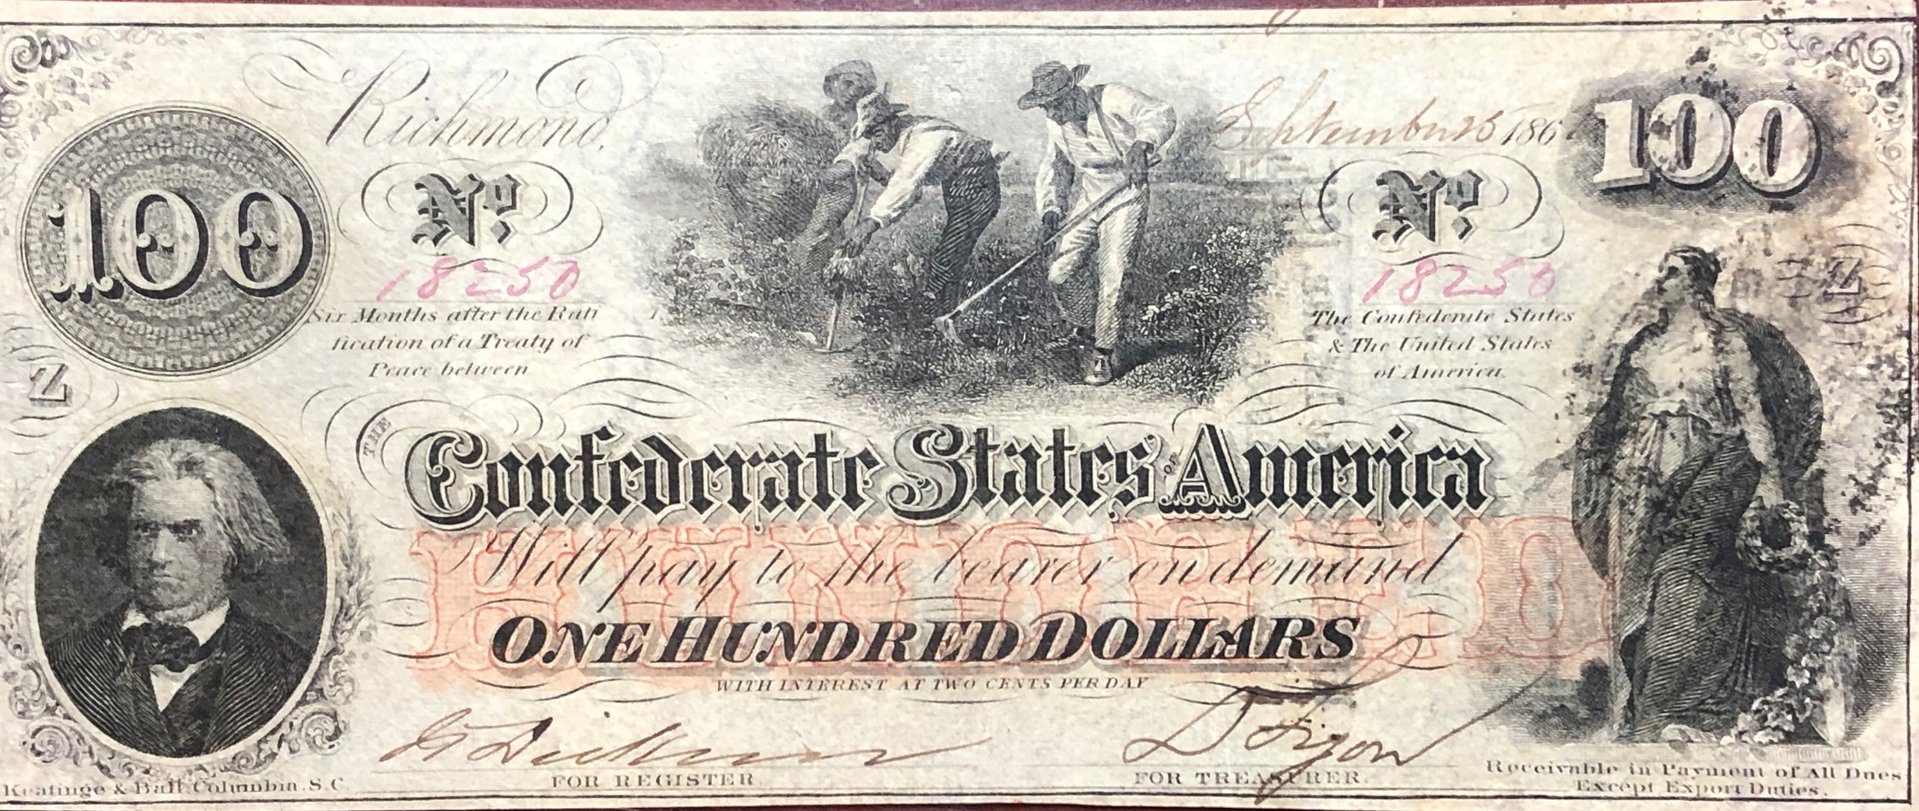 Richmond,
September 25 186
100
100
No.
No.
18250
18250
Six Months after the Rati
fication of a Treaty of
Peace between
The Confederate States
& The United States
of America.
Z
Z
THE
Confederate States OF America
HUNDRED
Will pay to the bearer on demand
ONE HUNDRED DOLLARS
WITH INTEREST AT TWO CENTS PER DAY
FOR REGISTER.
FOR TREASURER.
Keatinge & Ball, Columbia, S.C.
Receivable in Payment of All Dues
Except Export Duties.